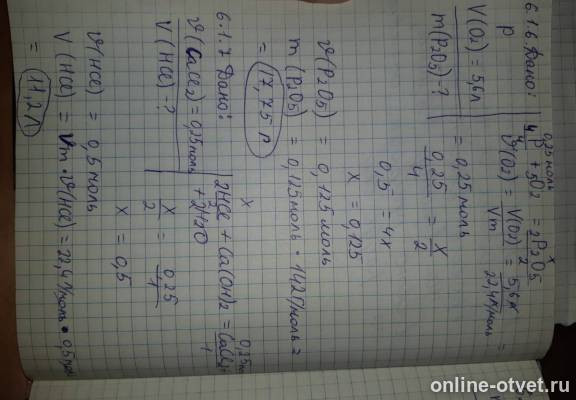 6.1.6. Дано:
P
V(O₂) = 5,6л
m(P₂O₅)-?
0,25 моль x
4P + 5O₂ = 2P₂O₅
ν(O₂) = V(O₂)/Vm = 5,6л/22,4л/моль =
= 0,25 моль
0,25/4 = x/2
0,5 = 4x
x = 0,125
ν(P₂O₅) = 0,125 моль
m(P₂O₅) = 0,125моль • 142г/моль =
= 17,75 г
6.1.7 Дано:
ν(CaCl₂) = 0,25 моль
V(HCl)-?
x 0,25 моль
2HCl + Ca(OH)₂ = CaCl₂
2 1
+ 2H₂O
x/2 = 0,25/1
x = 0,5
ν(HCl) = 0,5 моль
V(HCl) = Vm • ν(HCl) = 22,4 л/моль • 0,5 моль
= 11,2 л
online-otvet.ru